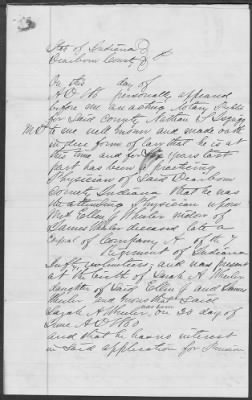 State of Indiana
Dearborn County
On this day of
A D 186 personally appeared
before me an acting Notary Public
for Said County Nathan
to me well known and made oath
in due form of law that he is at
this time and for years last
past has been a practicing
Physician of Said Dearborn
County Indiana that he was
the attending Physician upon
Mrs Ellen J Wheeler widow of
James Wheeler deceased late a
Corporal of Company A of the 7
Regiment of Indiana
Infty volunteers and was present
at the birth of Sarah A Wheeler
daughter of Said Ellen J and James
Wheeler and knows that Said
Sarah A Wheeler was born on 20 day of
June A D 1860
and that he has no interest
in Said application for Pension